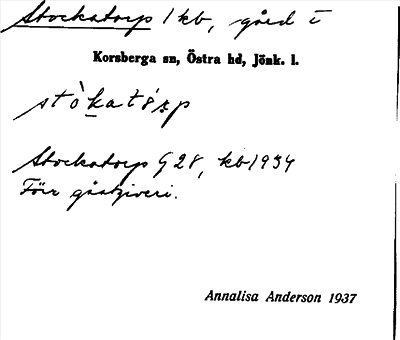 Stockatorp 1 kb, gård i
Korsberga sn, Östra hd, Jönk. l.
stòkatórp
Stockatorp G 28, kb 1934
Förr gästgiveri.
Annalisa Anderson 1937